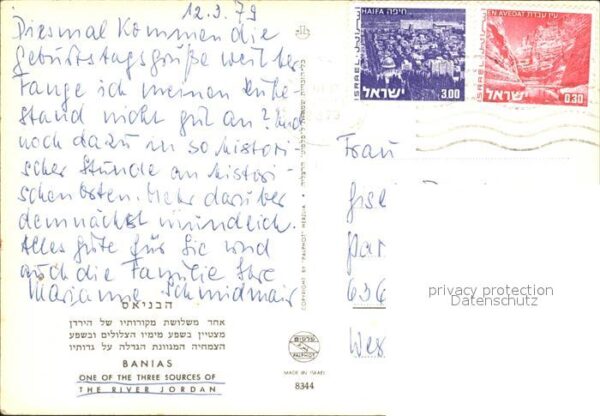 12.3.79
Diesmal kommen die
Geburtstagsgrüße weit her
Fange ich meinen Ruhe-
stand nicht gut an? Und
noch dazu in so histori-
scher Stunde an histori-
schen Orten. Mehr darüber
demnächst mündlich.
Alles gute für Sie und
auch die Familie Ihre
Marianne Schmidmair
הבניאס
אחד משלושת מקורותיו של הירדן
מצטיין בשפע מימיו הצלולים ובשפע
הצמחיה המגוונת הגדלה על גדותיו
BANIAS
ONE OF THE THREE SOURCES OF
THE RIVER JORDAN
COPYRIGHT BY PALPHOT HERZLIA
PALPHOT
MADE IN ISRAEL
8344
חיפה HAIFA
ISRAEL
ישראל 3.00
EN AVEDAT עין עבדת
ISRAEL
ישראל 0.30
Frau
Gise
Par
636
Wes
privacy protection
Datenschutz